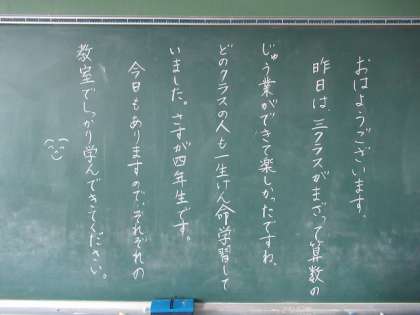 おはようございます。
昨日は、三クラスがまざって算数の
じゅう業ができて楽しかったですね。
どのクラスの人も一生けん命学習して
いました。さすが四年生です。
今日もありますので、それぞれの
教室でしっかり学んできてください。